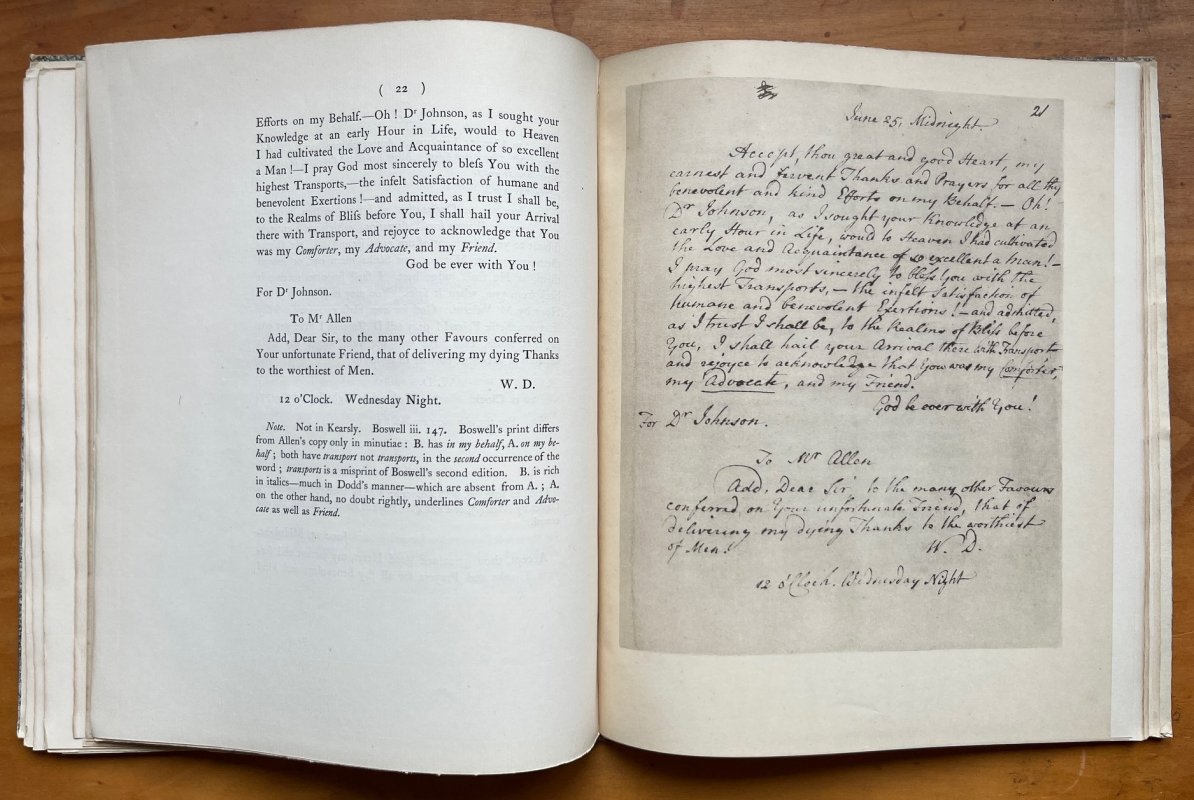 ( 22 )
Efforts on my Behalf.—Oh ! Dʳ Johnson, as I sought your
Knowledge at an early Hour in Life, would to Heaven
I had cultivated the Love and Acquaintance of so excellent
a Man !—I pray God most sincerely to bleſs You with the
highest Transports,—the infelt Satisfaction of humane and
benevolent Exertions !—and admitted, as I trust I shall be,
to the Realms of Bliſs before You, I shall hail your Arrival
there with Transport, and rejoyce to acknowledge that You
was my Comforter, my Advocate, and my Friend.
God be ever with You !
For Dʳ Johnson.
To Mʳ Allen
Add, Dear Sir, to the many other Favours conferred on
Your unfortunate Friend, that of delivering my dying Thanks
to the worthiest of Men.
W. D.
12 o'Clock. Wednesday Night.
Note. Not in Kearsly. Boswell iii. 147. Boswell's print differs
from Allen's copy only in minutiae : B. has in my behalf, A. on my be-
half ; both have transport not transports, in the second occurrence of the
word ; transports is a misprint of Boswell's second edition. B. is rich
in italics—much in Dodd's manner—which are absent from A. ; A.
on the other hand, no doubt rightly, underlines Comforter and Advo-
cate as well as Friend.
21
June 25, Midnight.
Accept, thou great and good Heart, my
earnest and fervent Thanks and Prayers for all thy
benevolent and kind Efforts on my Behalf. — Oh!
Dʳ Johnson, as I sought your Knowledge at an
early Hour in Life, would to Heaven I had cultivated
the Love and Acquaintance of so excellent a Man! –
I pray God most sincerely to bleſs You with the
highest Transports, — the infelt Satisfaction of
humane and benevolent Exertions! – and admitted,
as I trust I shall be, to the Realms of Bliſs before
You, I shall hail your Arrival there with Transport
and rejoyce to acknowledge that You was my Comforter,
my Advocate, and my Friend.
God be ever with You!
For Dʳ Johnson.
To Mʳ Allen
Add, Dear Sir to the many other Favours
conferred on Your unfortunate Friend, that of
delivering my dying Thanks to the worthiest
of Men.
W. D.
12 o'Clock. Wednesday Night